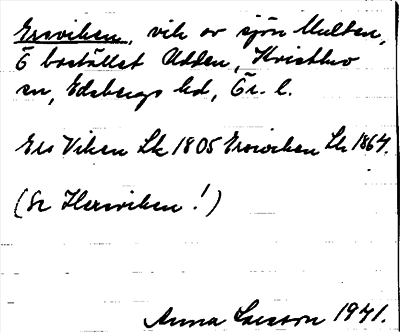 Ersviken, vik av sjön Multen,
Ö bostället Udden, Kvistbro
sn, Edsbergs hd, Ör. l.
Ers Viken Lk 1805 Ersviken Lk 1864.
(Se Hersviken!)
Anna Larsson 1941.